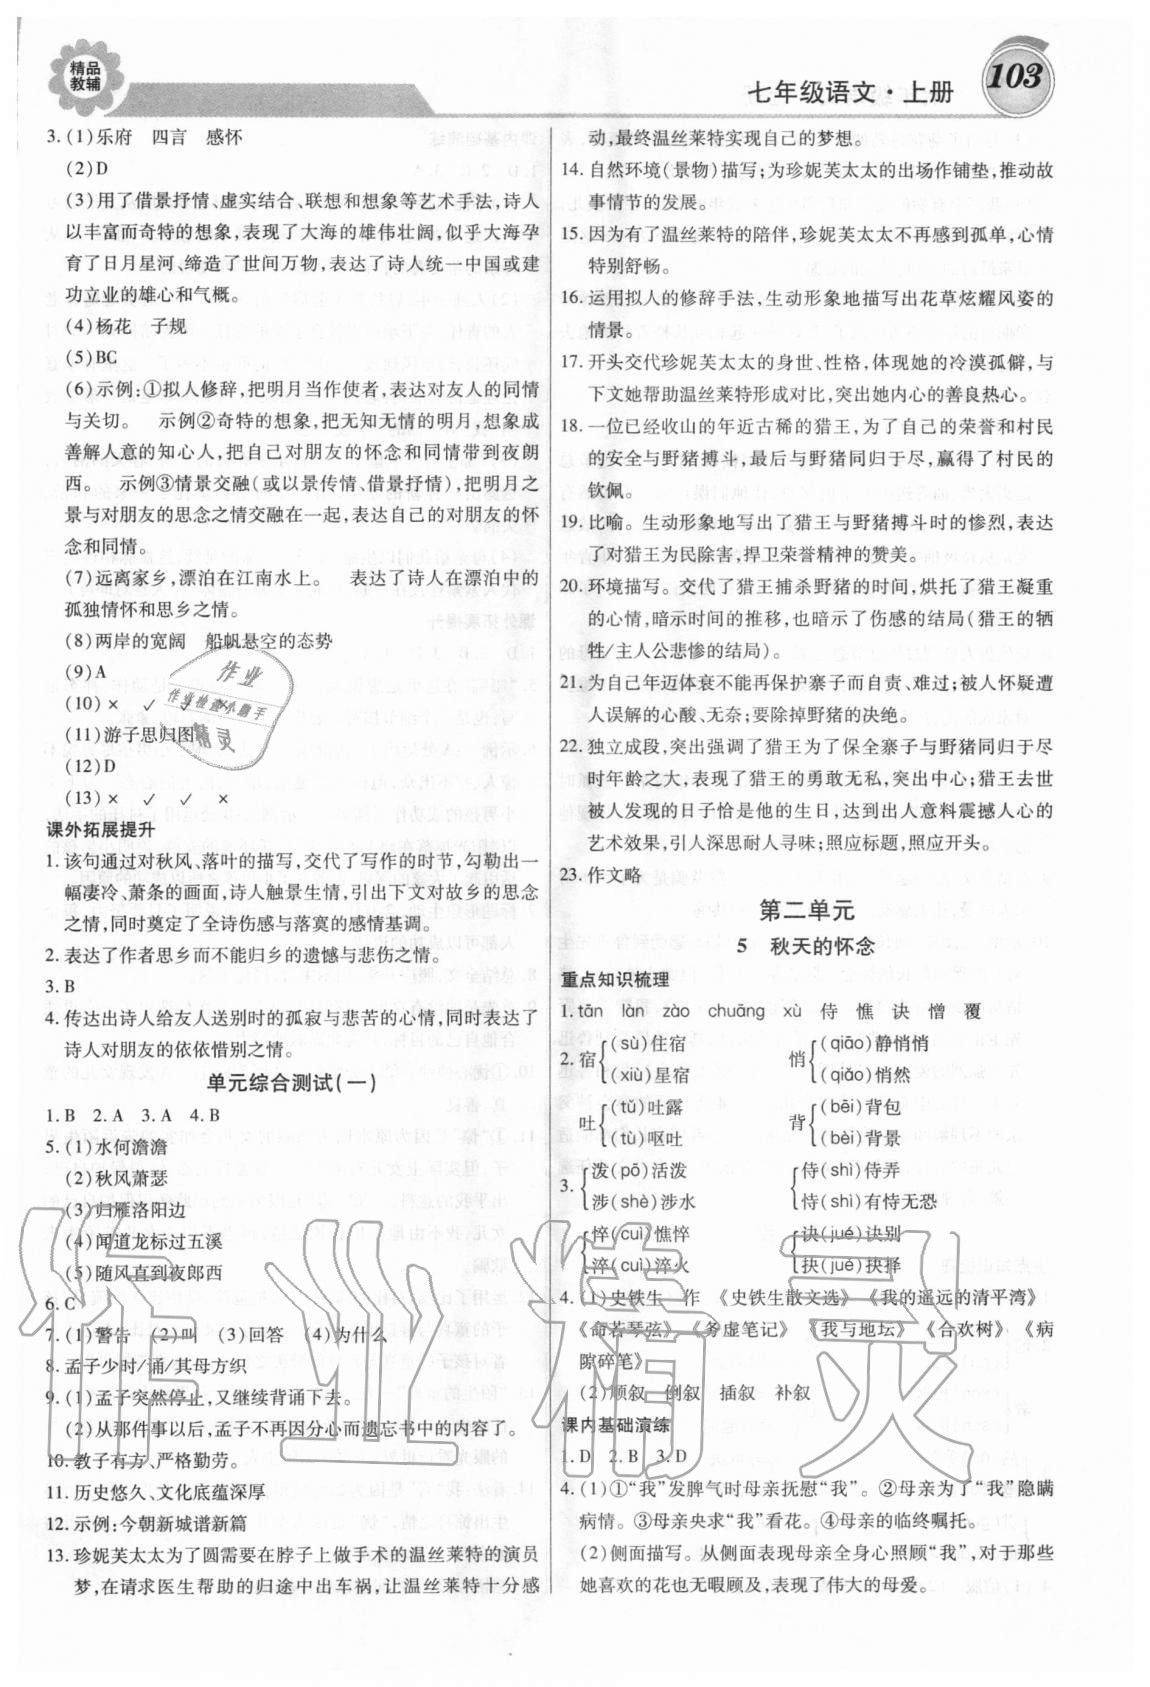 精品
教辅
七年级语文·上册
103
3. (1)乐府　四言　感怀
(2)D
(3)用了借景抒情、虚实结合、联想和想象等艺术手法,诗人
以丰富而奇特的想象,表现了大海的雄伟壮阔,似乎大海孕
育了日月星河,缔造了世间万物,表达了诗人统一中国或建
功立业的雄心和气概。
(4)杨花　子规
(5)BC
(6)示例:①拟人修辞,把明月当作使者,表达对友人的同情
与关切。　示例②奇特的想象,把无知无情的明月,想象成
善解人意的知心人,把自己对朋友的怀念和同情带到夜朗
西。　示例③情景交融(或以景传情、借景抒情),把明月之
景与对朋友的思念之情交融在一起,表达自己的对朋友的怀
念和同情。
(7)远离家乡,漂泊在江南水上。　表达了诗人在漂泊中的
孤独情怀和思乡之情。
(8)两岸的宽阔　船帆悬空的态势
(9)A
(10)×　✓　✓　×
(11)游子思归图
(12)D
(13)×　✓　✓　×
课外拓展提升
1. 该句通过对秋风、落叶的描写,交代了写作的时节,勾勒出一
幅凄冷、萧条的画面,诗人触景生情,引出下文对故乡的思念
之情,同时奠定了全诗伤感与落寞的感情基调。
2. 表达了作者思乡而不能归乡的遗憾与悲伤之情。
3. B
4. 传达出诗人给友人送别时的孤寂与悲苦的心情,同时表达了
诗人对朋友的依依惜别之情。
单元综合测试(一)
1. B　2. A　3. A　4. B
5. (1)水何澹澹
(2)秋风萧瑟
(3)归雁洛阳边
(4)闻道龙标过五溪
(5)随风直到夜郎西
6. C
7. (1)警告　(2)叫　(3)回答　(4)为什么
8. 孟子少时/诵/其母方织
9. (1)孟子突然停止,又继续背诵下去。
(2)从那件事以后,孟子不再因分心而遗忘书中的内容了。
10. 教子有方、严格勤劳。
11. 历史悠久、文化底蕴深厚
12. 示例:今朝新城谱新篇
13. 珍妮芙太太为了圆需要在脖子上做手术的温丝莱特的演员
梦,在请求医生帮助的归途中出车祸,让温丝莱特十分感
动,最终温丝莱特实现自己的梦想。
14. 自然环境(景物)描写;为珍妮芙太太的出场作铺垫,推动故
事情节的发展。
15. 因为有了温丝莱特的陪伴,珍妮芙太太不再感到孤单,心情
特别舒畅。
16. 运用拟人的修辞手法,生动形象地描写出花草炫耀风姿的
情景。
17. 开头交代珍妮芙太太的身世、性格,体现她的冷漠孤僻,与
下文她帮助温丝莱特形成对比,突出她内心的善良热心。
18. 一位已经收山的年近古稀的猎王,为了自己的荣誉和村民
的安全与野猪搏斗,最后与野猪同归于尽,赢得了村民的
钦佩。
19. 比喻。生动形象地写出了猎王与野猪搏斗时的惨烈,表达
了对猎王为民除害,捍卫荣誉精神的赞美。
20. 环境描写。交代了猎王捕杀野猪的时间,烘托了猎王凝重
的心情,暗示时间的推移,也暗示了伤感的结局(猎王的牺
牲/主人公悲惨的结局)。
21. 为自己年迈体衰不能再保护寨子而自责、难过;被人怀疑遭
人误解的心酸、无奈;要除掉野猪的决绝。
22. 独立成段,突出强调了猎王为了保全寨子与野猪同归于尽
时年龄之大;表现了猎王的勇敢无私,突出中心;猎王去世
被人发现的日子恰是他的生日,达到出人意料震撼人心的
艺术效果,引人深思耐人寻味;照应标题,照应开头。
23. 作文略
第二单元
5　秋天的怀念
重点知识梳理
1. tān　làn　zào　chuāng　xù　侍　憔　诀　憎　覆
2. 宿{(sù)住宿　(xiù)星宿　悄{(qiāo)静悄悄　(qiǎo)悄然
吐{(tǔ)吐露　(tù)呕吐　背{(bēi)背包　(bèi)背景
3. {泼(pō)活泼　涉(shè)涉水　{侍(shì)侍弄　恃(shì)有恃无恐
{悴(cuì)憔悴　淬(cuì)淬火　{诀(jué)诀别　抉(jué)抉择
4. (1)史铁生　作　《史铁生散文选》《我的遥远的清平湾》
《命若琴弦》《务虚笔记》《我与地坛》《合欢树》《病
隙碎笔》
(2)顺叙　倒叙　插叙　补叙
课内基础演练
1. D　2. B　3. D
4. (1)①“我”发脾气时母亲抚慰“我”。②母亲为了“我”隐瞒
病情。③母亲央求“我”看花。④母亲的临终嘱托。
(2)侧面描写。从侧面表现母亲全身心照顾“我”,对于那些
她喜欢的花也无暇顾及,表现了伟大的母爱。
作业
作业检查小助手
精灵
作业精灵